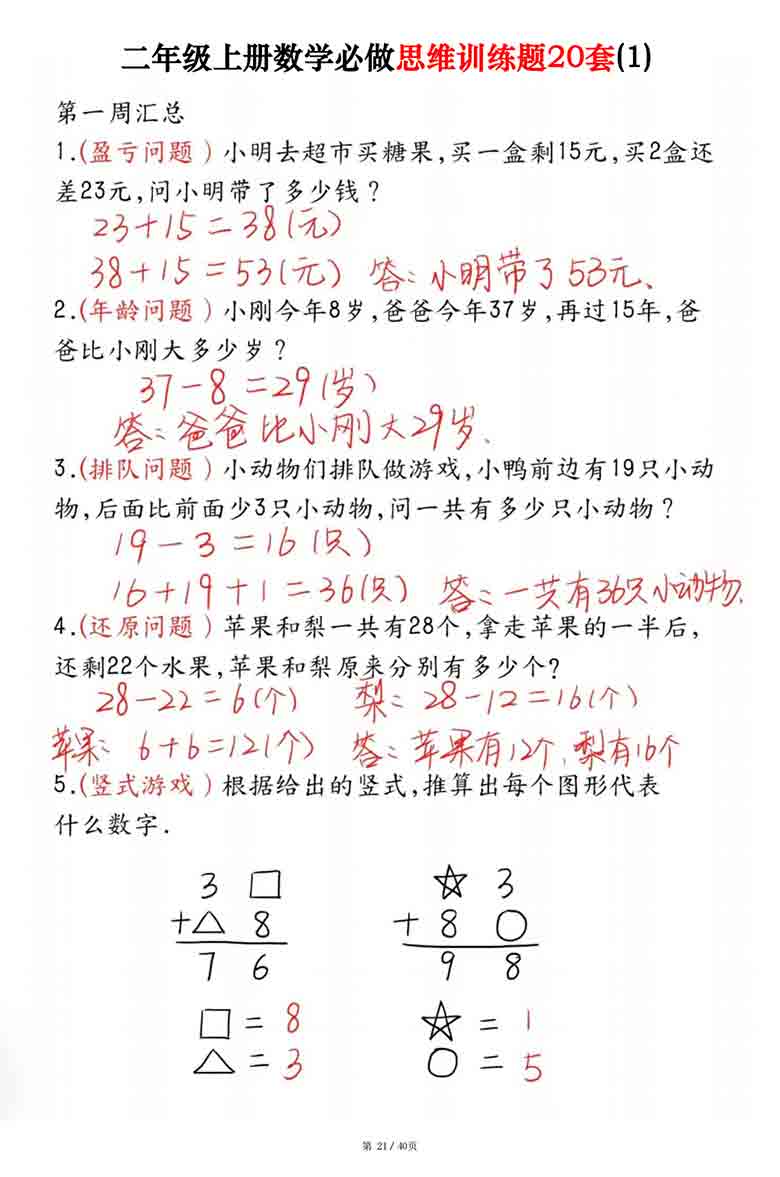 二年级上册数学必做思维训练题20套(1)
第一周汇总
1.(盈亏问题)小明去超市买糖果,买一盒剩15元,买2盒还
差23元,问小明带了多少钱?
23+15=38(元)
38+15=53(元) 答:小明带了53元.
2.(年龄问题)小刚今年8岁,爸爸今年37岁,再过15年,爸
爸比小刚大多少岁?
37-8=29(岁)
答:爸爸比小刚大29岁.
3.(排队问题)小动物们排队做游戏,小鸭前边有19只小动
物,后面比前面少3只小动物,问一共有多少只小动物?
19-3=16(只)
16+19+1=36(只) 答:一共有36只小动物.
4.(还原问题)苹果和梨一共有28个,拿走苹果的一半后,
还剩22个水果,苹果和梨原来分别有多少个?
28-22=6(个) 梨:28-12=16(个)
苹果:6+6=12(个) 答:苹果有12个,梨有16个
5.(竖式游戏)根据给出的竖式,推算出每个图形代表
什么数字.
3 □ ☆ 3
+△ 8 + 8 ○
7 6 9 8
□=8 ☆=1
△=3 ○=5
第 21 / 40页